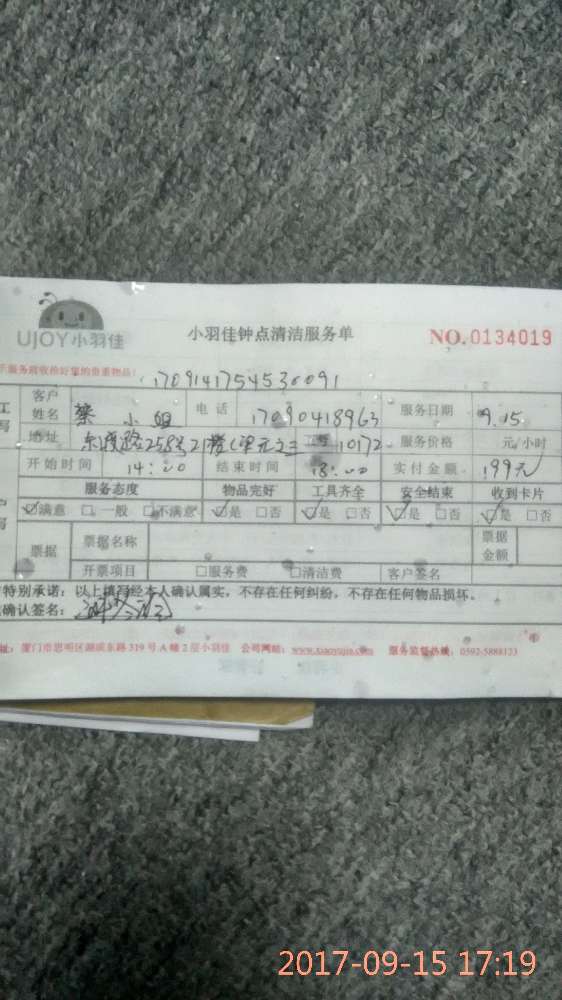 UJOY小羽佳 小羽佳钟点清洁服务单 NO.0134019
1709141754530091
客户姓名 小姐 电话 17090418963 服务日期 9.15
地址 258号21楼 10172 服务价格 元/小时
开始时间 14:00 结束时间 18:00 实付金额 199元
服务态度 物品完好 工具齐全 安全结束 收到卡片
☑满意 □一般 □不满意 ☑是 □否 ☑是 □否 ☑是 □否 ☑是 □否
票据 票据名称 票据金额
开票项目 □服务费 □清洁费 客户签名
特别承诺：以上填写经本人确认属实，不存在任何纠纷，不存在任何物品损坏。
确认签名：
厦门市思明区湖滨东路319号A幢2层小羽佳 公司网站：www.xiaoyujia.com 服务监督热线：0592-5888123
2017-09-15 17:19